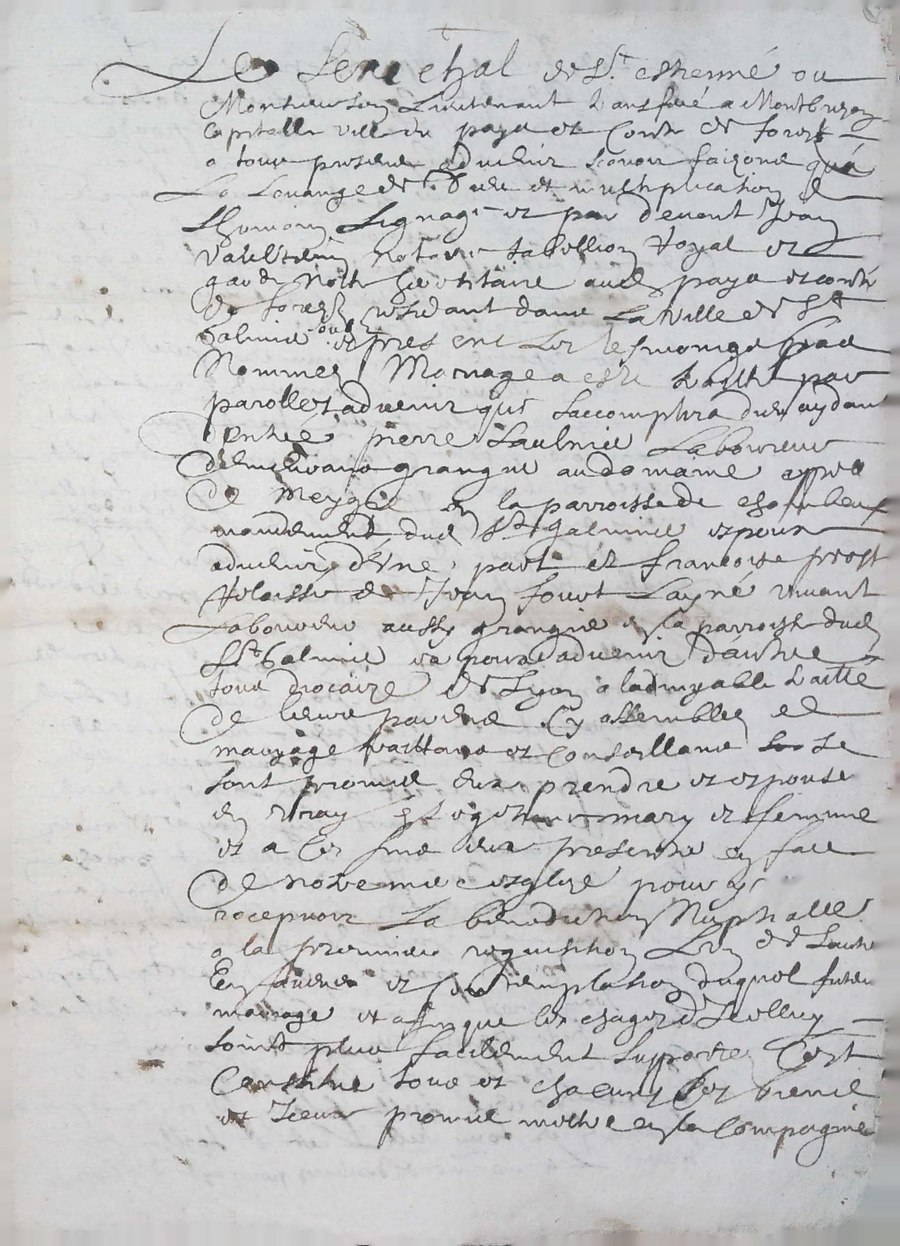 Le Senechal de St estienne ou
Monsieur son Lieutenant a Montbrison
Cappitalle ville du pays et Conte de forestz
a tous presens advenir scavoir faisons qua
La Louange de Dieu et multiplication de
Lhumain Lignage et par devant Jean
notaire tabellion Royal et
garde notte hereditaire aud pays et conte
de forestz residant dans La ville de St
Galmier et presens Les tesmoings bas
Nommes Mariage a este traitte par
parolles advenir qui saccomplira Dieu aydant
Entre pierre Saulnier Laboureur
grangier au domaine appelle
de Meygie en la parroisse de
mandement dud St Galmier espoux
advenir dune part et francoise prost
relaisse de Jean Layné vivant
Laboureur aussy grangier en la parroisse dud
St Galmier advenir dautre
tous diocaize de Lyon a ladmyable traitte
de leurs parens Cy assembles et
mariage traittans et Conseillans se
sont promis prendre et espouse
en vray et mary et femme
et a Ces fins se presenter en face
de notre mere esglize pour y
recepvoir La benediction Nuptialle
a la premiere requisition Lun de Lautre
En faveur et Contemplation duquel futeur
mariage et afin que les charges dIcelluy
soint plus facillement supportes Cest
Constitue tous et chacuns ses biens
et Iceux promis mettre en la Compagnie